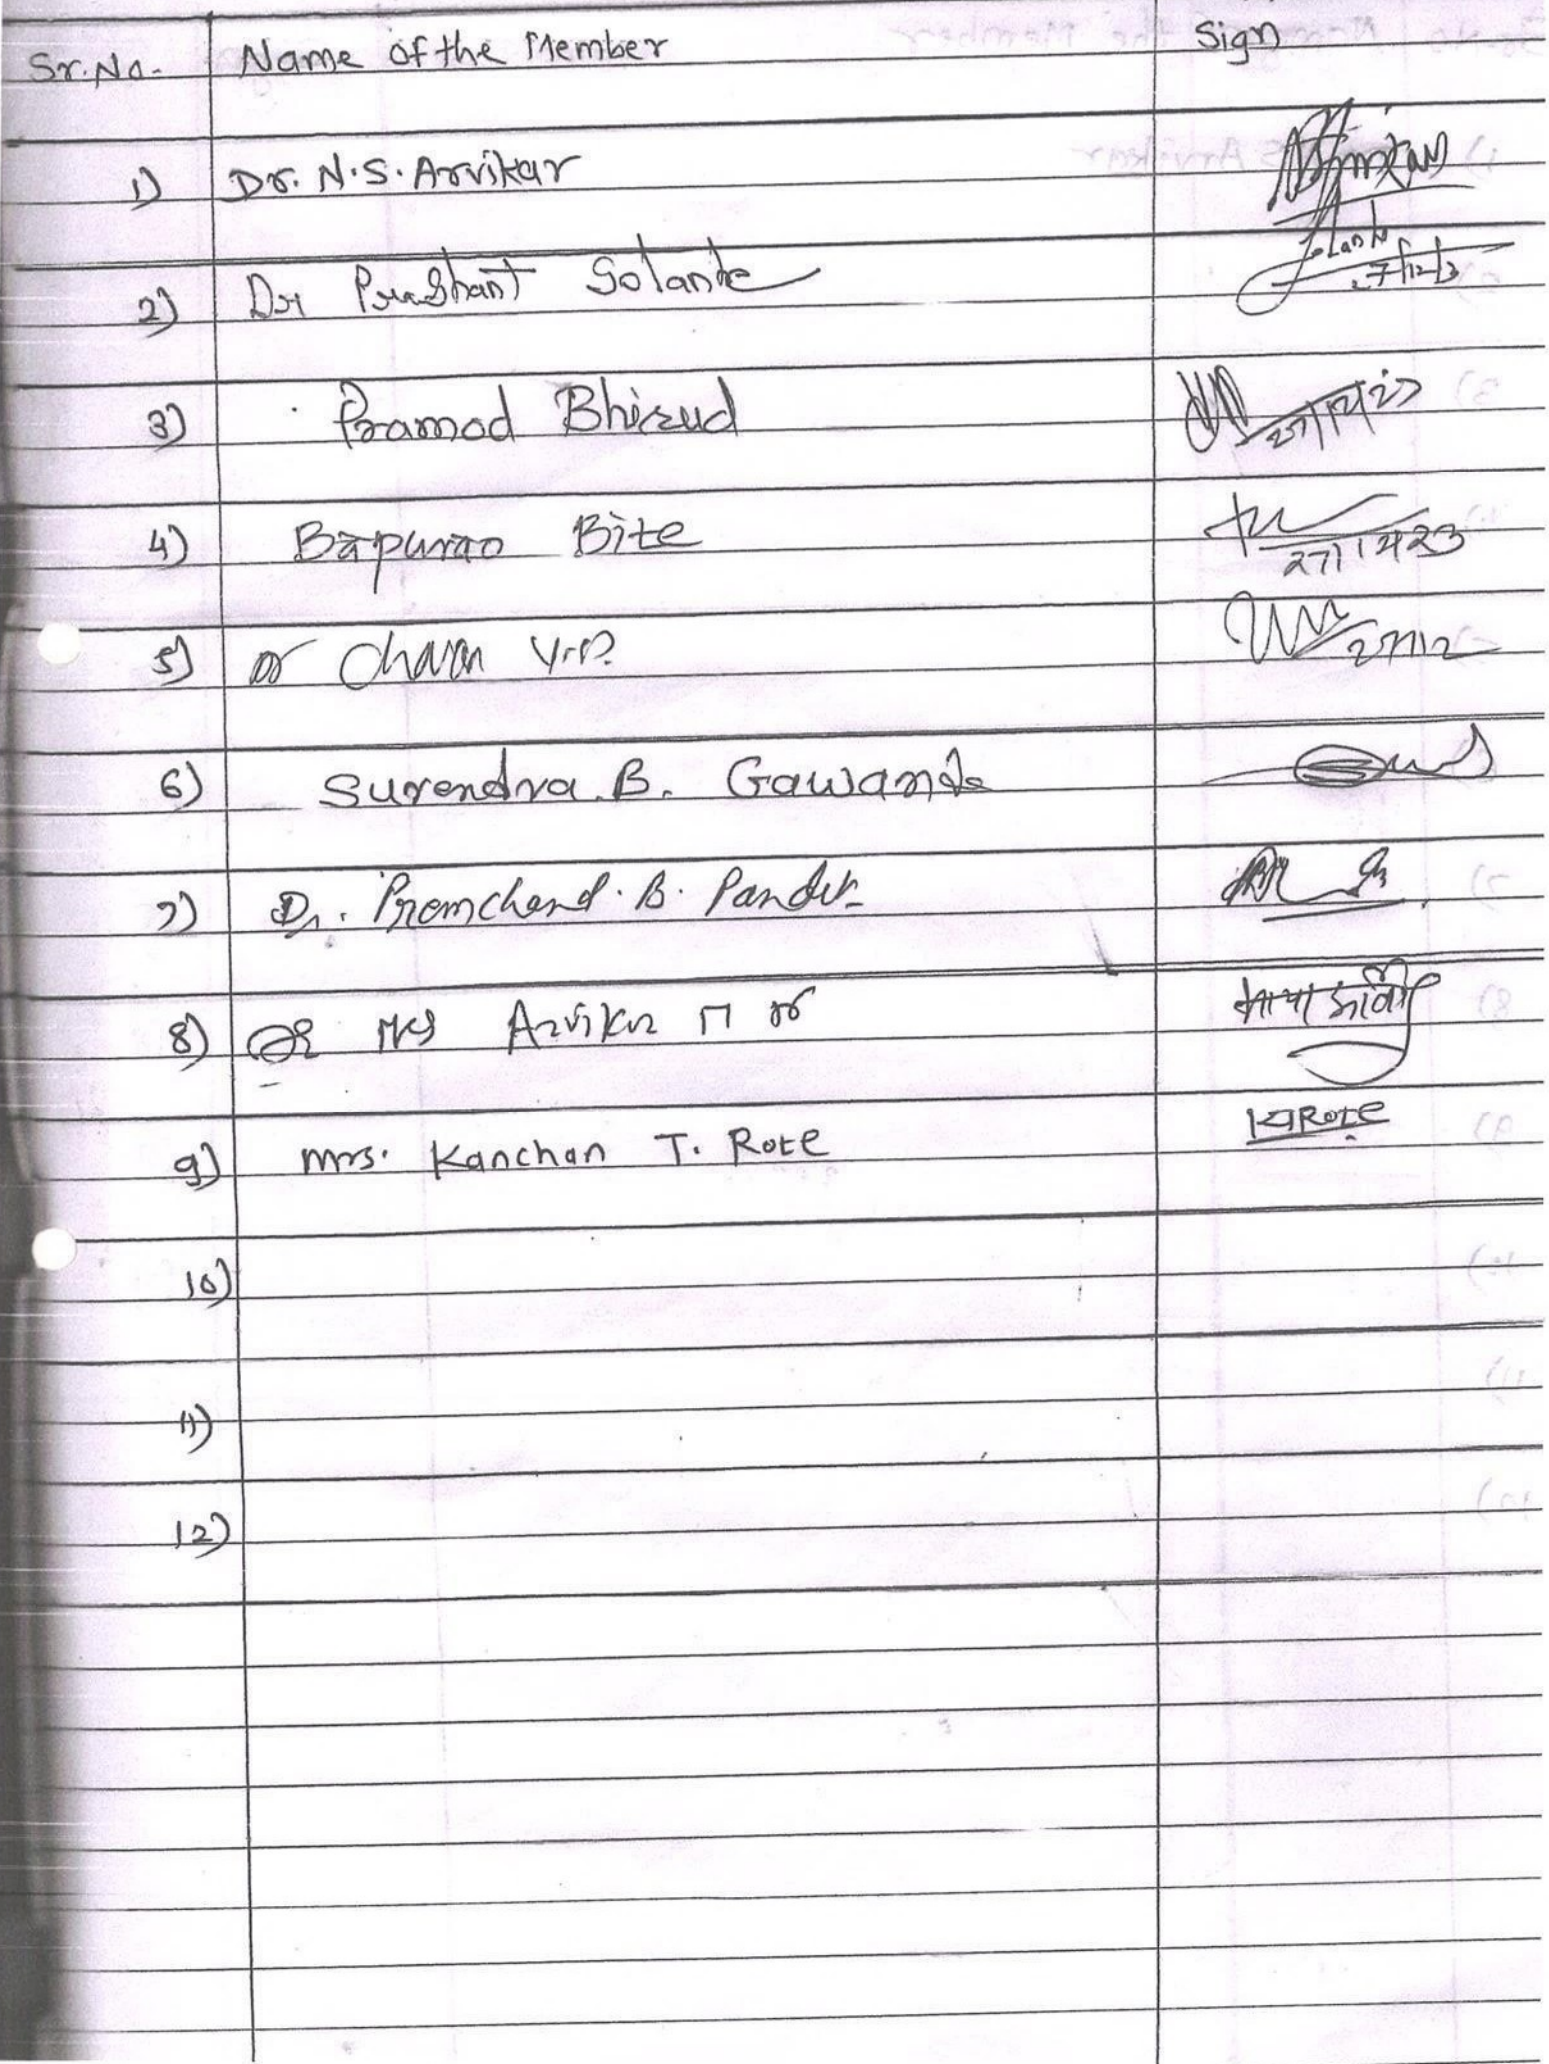 Sr.No. Name of the Member Sign
1) Dr. N.S. Arvikar
2) Dr Prashant Solanke
3) Pramod Bhirud 27/12/23
4) Bapurao Bite 27/12/23
5) Dr 27/12
6) Surendra B. Gawande
7) Dr. Premchand B.
8) Arvikar
9) Mrs. Kanchan T. Rote KTRote
10)
11)
12)